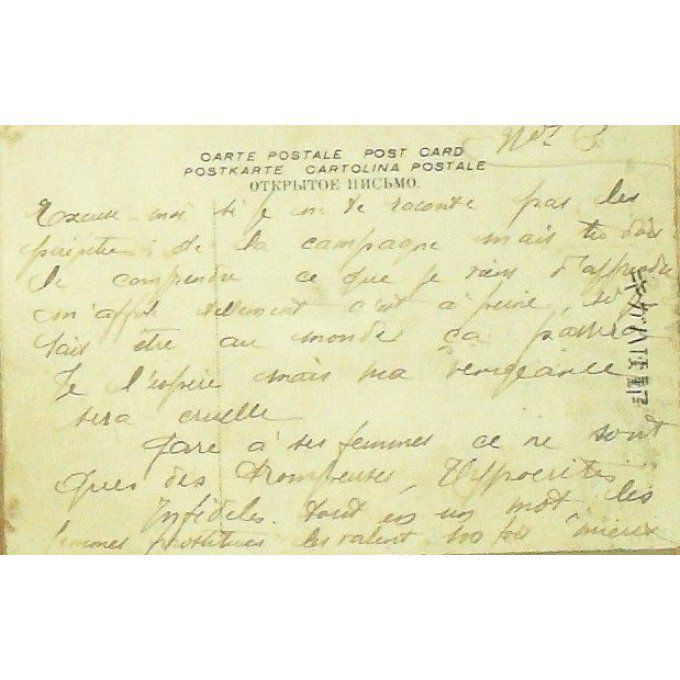 No 3
CARTE POSTALE POST CARD
POSTKARTE CARTOLINA POSTALE
ОТКРЫТОЕ ПИСЬМО.
Excuse moi si je ne te raconte pas les
de la campagne mais tu dois
le comprendre ce que je viens d'apprendre
m'affole tellement c'est à peine si je
sais être au monde ça passera
Je l'espère mais ma vengeance
sera cruelle
Gare à ses femmes ce ne sont
ques des trompeuses, Hyppocrites
Infidèles tout en un mot les
femmes prostituées les valent 100 fois mieux